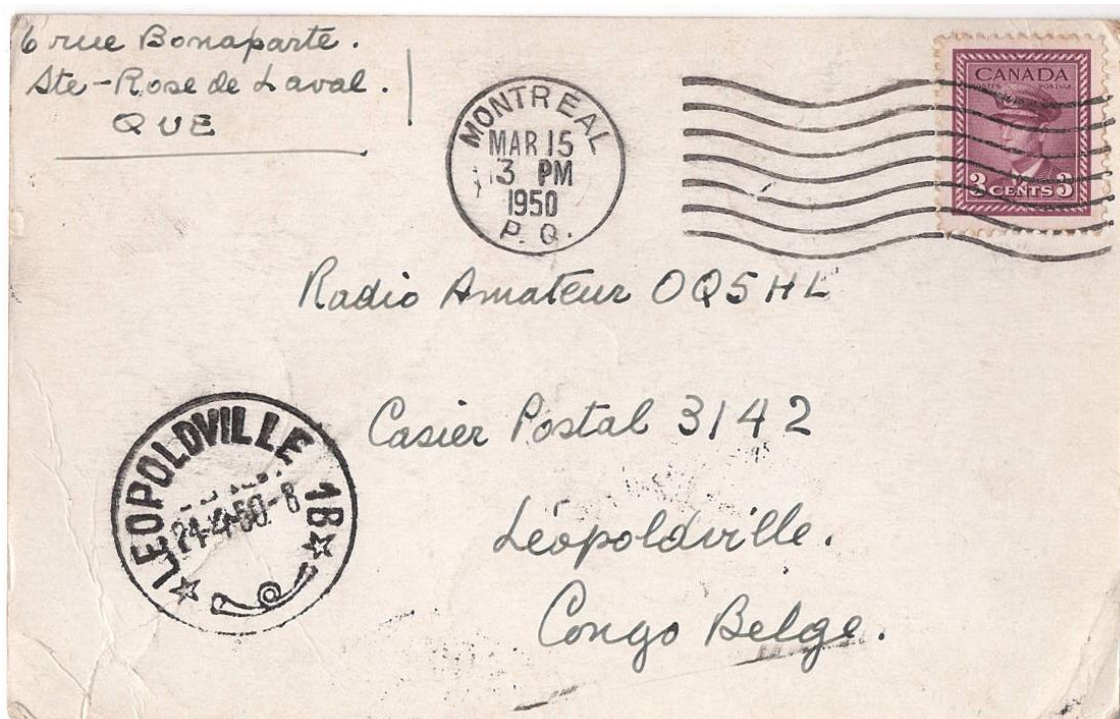 6 rue Bonaparte.
Ste-Rose de Laval.
QUE
MONTREAL
MAR 15
3 PM
1950
P. Q.
CANADA
POSTES POSTAGE
3 CENTS 3
Radio Amateur OQ5HL
Casier Postal 3142
Léopoldville.
Congo Belge.
LEOPOLDVILLE 1B
24-4-50-8